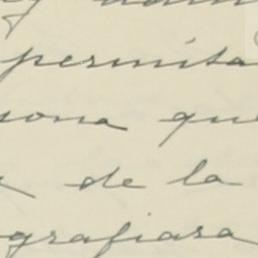 permita
sona que
de la
grafiara